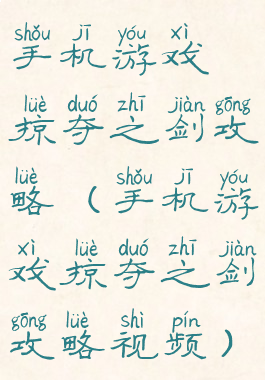 shǒu jī yóu xì
手机游戏
lüè duó zhī jiàn gōng
掠夺之剑攻
lüè shǒu jī yóu
略（手机游
xì lüè duó zhī jiàn
戏掠夺之剑
gōng lüè shì pín
攻略视频）